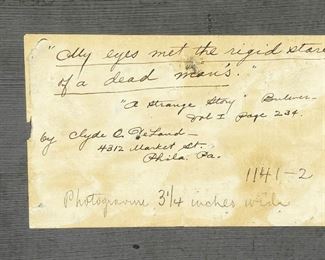 "My eyes met the rigid stare
of a dead man's."
"A Strange Story" Bulwer-
Vol I page 234.
by Clyde O. DeLand-
4312 Market St.
Phila. Pa.
1141-2
Photogravure 3 1/4 inches wide